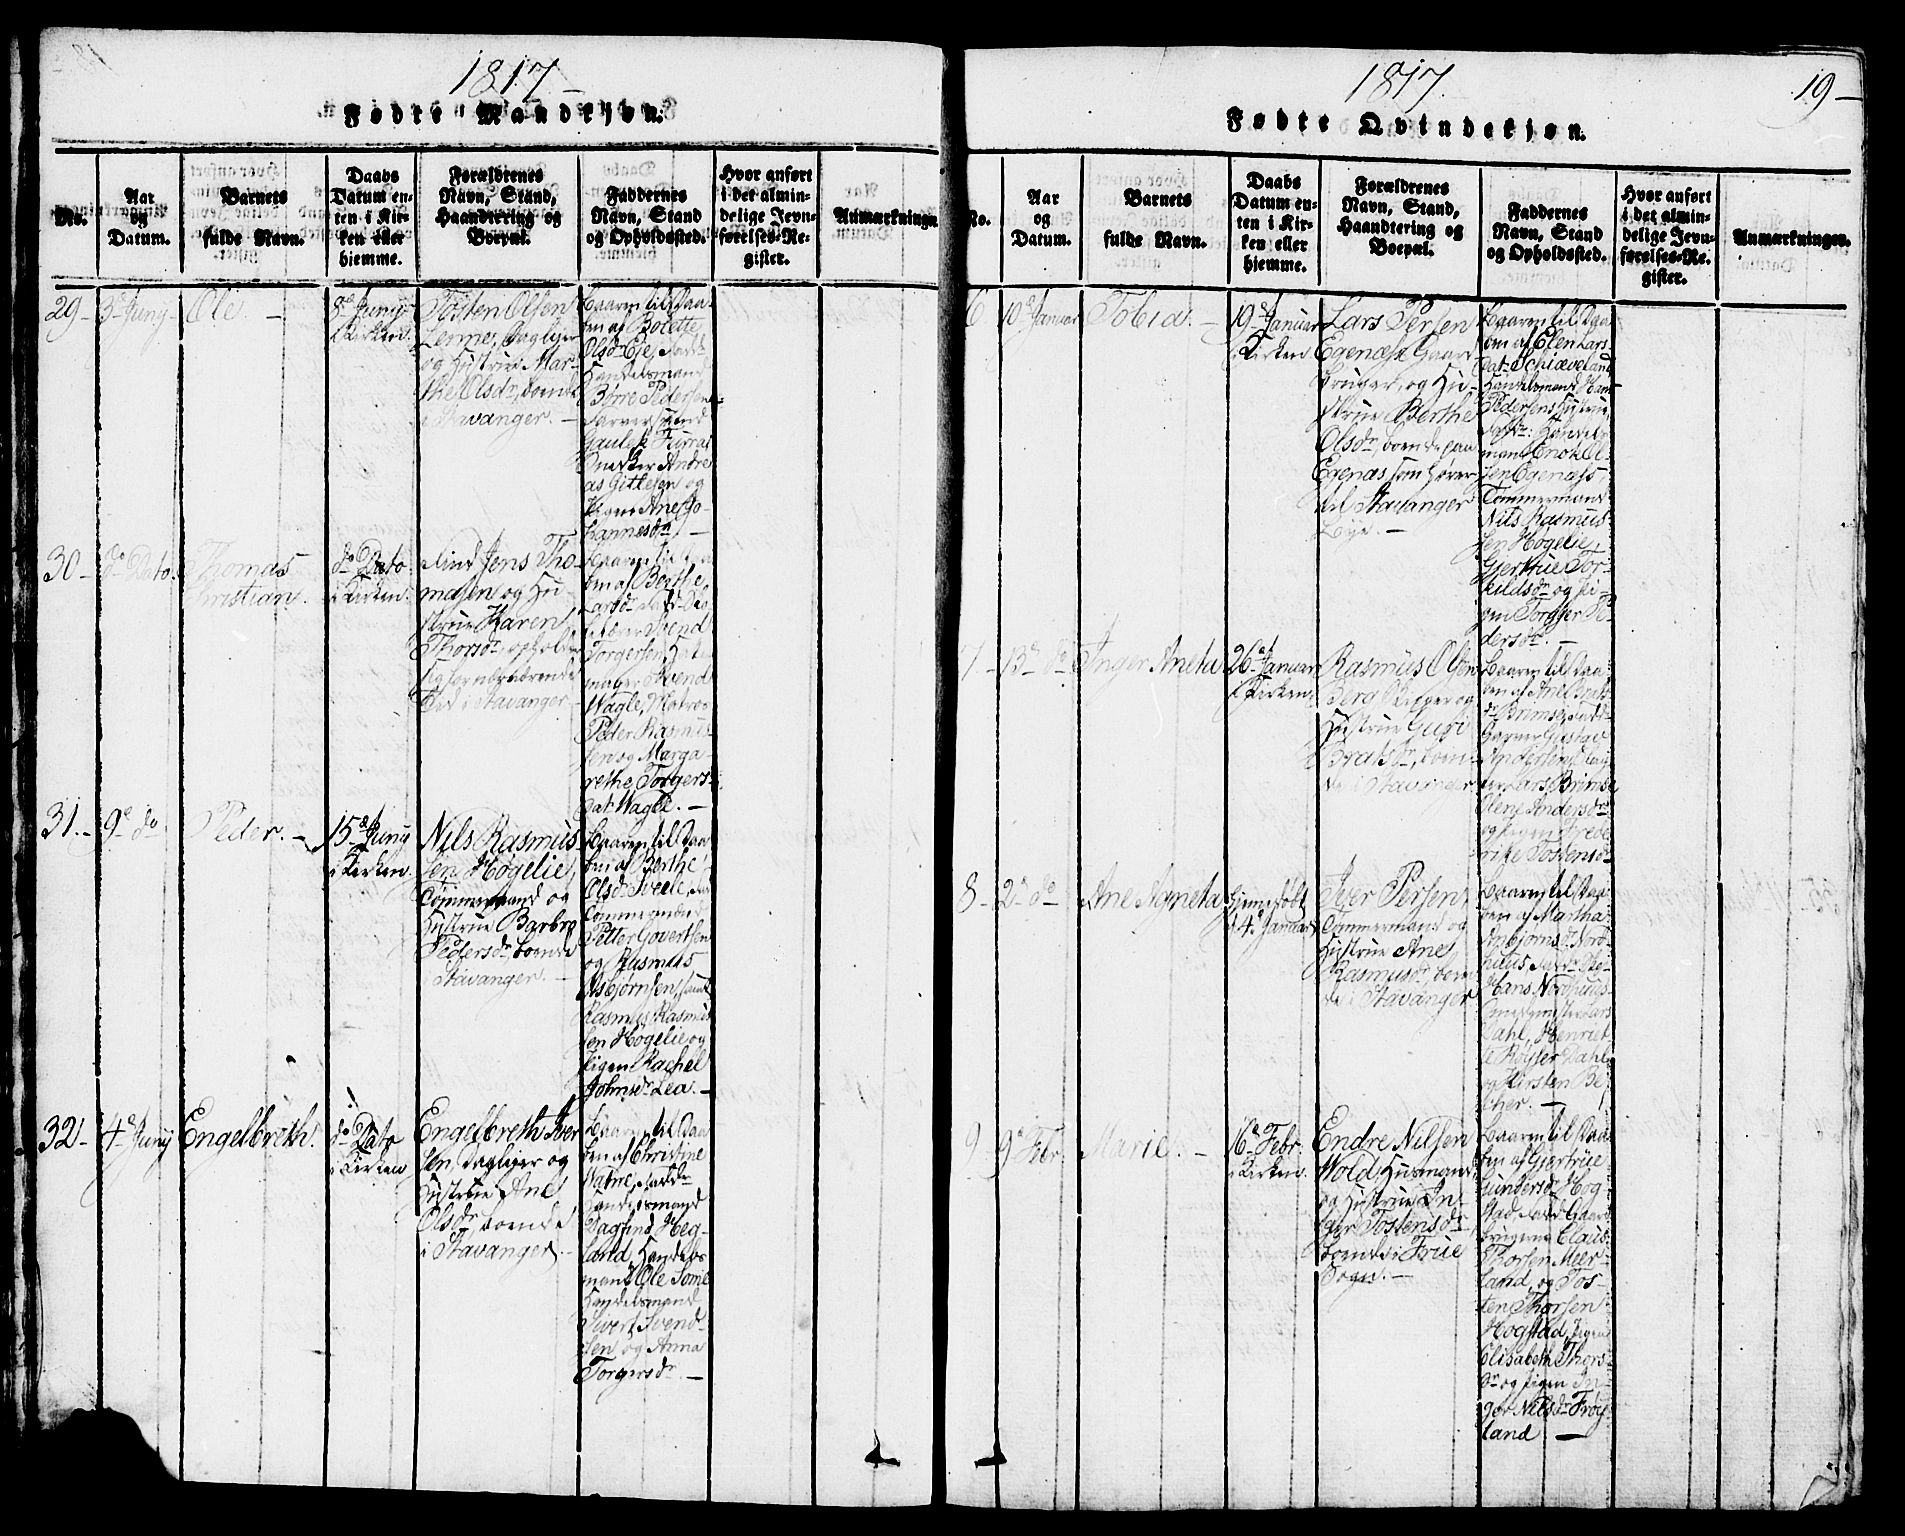 1817
Fødte Mandkjøn.
No.
Aar
og
Datum.
Barnets
fulde Navn.
Daabs
Datum en-
ten i Kir-
ken eller
hjemme.
Forældrenes
Navn, Stand,
Haandtering og
Boepæl.
Faddernes
Navn, Stand
og Opholdssted.
Hvor anført
i det almin-
delige Jevn-
førelses-Re-
gister.
Anmærkninge
29 -
3de Juny -
Ole. -
8de Juny
i Kirken.
Tosten Olsen
og Hustrue Mar-
the Olsdr, boende
i Stavanger. -
baaren til Daa
ben af Bolette
Olsdr Eie,
Handelsmand
Børre Pedersen
Svend
Andre
as Gittesen og
Pigen Ane Jo-
hannesdr -
30 -
do Dato.
Thomas
Christian.
do Dato
i Kirken.
Jens Tho-
masen og Hu-
strue Karen
Thorsdr, opholder
sig for nærværende
Tid i Stavanger -
baaren til Daa
ben af Berthe
Larsdr
Svend
Torgersen,
mager Svend
Wagle, Matros
Peder Rasmus-
sen og Marga
rethe Torgers-
dat. Wagle. -
31. -
9de do
Peder. -
15de Juny
i Kirken.
Nils Rasmus-
sen Høgelie,
Tømmermand og
Hustrue Barbro
Pedersdr, boende
i Stavanger. -
baaren til Daa
ben af Berthe
Olsdr
Tømmermænd
Petter Govertsen
og Rasmus
Asbjørnsen, samt
Rasmus Rasmus
sen Høgelie og
Pigen Rachel
Johnsdr Lea. -
32 -
4de Juny
Engelbreth.
do Dato
i Kirken
Engelbreth Iver
sen, Dagleier og
Hustrue Ane
Olsdr, boende
i Stavanger. -
baaren til Daa
ben af Christine
Handelsmand
Dagfind Heg-
land, Handels
mand Ole Some
Handelsmand
Sivert Svend-
sen, og Anna
Torgersdr. -
1817.
19 -
Fødte Qvindekjøn.
No.
Aar
og
Datum.
Barnets
fulde Navn.
Daabs
Datum en-
ten i Kir-
ken eller
hjemme.
Forældrenes
Navn, Stand,
Haandtering og
Boepæl.
Faddernes
Navn, Stand
og Opholdssted.
Hvor anført
i det almin-
delige Jevn-
førelses-Re-
gister.
Anmærkninger.
6
10de Januar
Tobia. -
19de Januar
i Kirken
Lars Persen
Egenæss Gaard
bruger, og Hu-
strue Berthe
Olsdr, boende paa
Egenæs som hører
til Stavanger
Bye. -
baaren til Daa
ben af Elen Lars
dat. Schiæveland
Handelsmand Han
Pedersens Hustrue,
Handels
mand Enok Ol-
sen Egenæss,
Tømmermand
Nils Rasmus-
sen Høgelie,
Gjertrue Tor-
kildsdr og Pi-
gen Torgjer Pe-
dersdr. -
7 -
13de do
Inger Aneta
26de Januar
i Kirken.
Rasmus Olsen
Berg Skipper og
Hustrue Guri
Bratsdr, boen-
de i Stavanger
baaren til Daa-
ben af Ane Brats
dr Brimse,
Garver Gustav
Andersen,
Lars Brimse
Elene Andersdr
og Pigen Frede
rike Tostensdr
8 -
2de do
Ane Agneta
Hjemedøbt
4de Januar
Iver Persen,
Tømmermand og
Hustrue Ane
Rasmusdr, boen
de i Stavanger
baaren til Daa-
ben af Martha
Asbjørnsdr Nord
huus,
Hans Nordhuus
Lars
Dahl, Henriet-
te Røyser Dahl
og Kirsten Be-
cher. -
9 -
9de Febr.
Marie. -
16de Febr.
i Kirken.
Endre Nilsen
Wold, Husmand
og Hustrue In-
ger Tostensdr
boende i Frue
Sogn. -
baaren til Daa
ben af Gjertrue
Gundersdr Hog-
stad, Gaard
brugerne Claus
Thorsen Meer-
land, og Tos-
ten Thorsen
Hogstad, Pigen
Elisabeth Thors-
dr og Pigen In-
ger Nilsdr Frøy-
land -